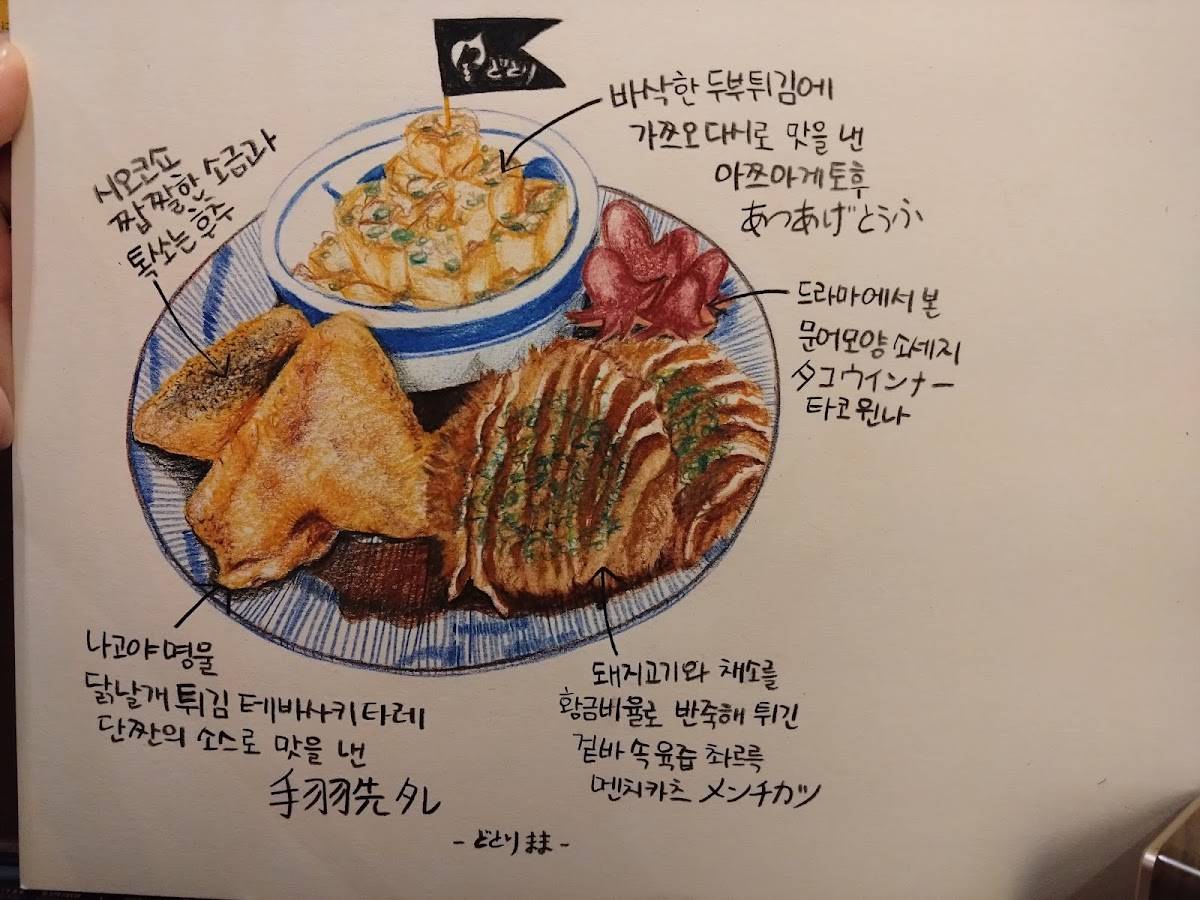 どとり
바삭한 두부튀김에
가쯔오다시로 맛을 낸
아쯔아게토후
あつあげとうふ
시오코쇼
짭짤한 소금과
톡쏘는 후추
드라마에서 본
문어모양 소세지
タコウインナー
타코윈나
나고야명물
닭날개 튀김 테바사키타레
단짠의 소스로 맛을 낸
手羽先タレ
돼지고기와 채소를
황금비율로 반죽해 튀긴
겉바속육즙 촤르륵
멘치카츠 メンチカツ
- どとりまま -